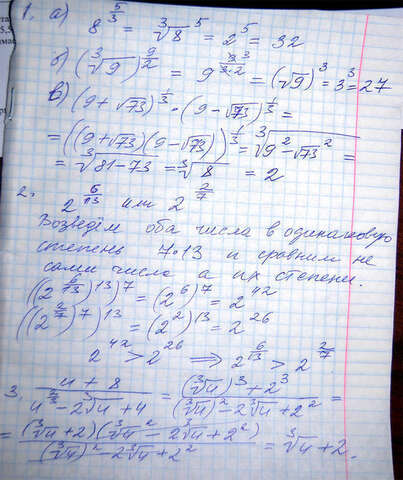 1. а) 8^{5/3} = ∛8^5 = 2^5 = 32
б) (∛9)^{9/2} = 9^{9/(3·2)} = (√9)^3 = 3^3 = 27
в) (9 + √73)^{1/3} · (9 − √73)^{1/3} =
= ((9+√73)(9−√73))^{1/3} = ∛(9^2 − √73^2) =
= ∛(81−73) = ∛8 = 2
2. 2^{6/13} или 2^{2/7}
Возведём оба числа в одинаковую
степень 7·13 и сравним не
сами числа а их степени.
((2^{6/13})^{13})^7 = (2^6)^7 = 2^{42}
((2^{2/7})^7)^{13} = (2^2)^{13} = 2^{26}
2^{42} > 2^{26} ⟹ 2^{6/13} > 2^{2/7}
3. (u + 8)/(u^{2/3} − 2∛u + 4) = ((∛u)^3 + 2^3)/((∛u)^2 − 2∛u + 2^2) =
= ((∛u + 2)(∛u^2 − 2∛u + 2^2))/((∛u)^2 − 2∛u + 2^2) = ∛u + 2.